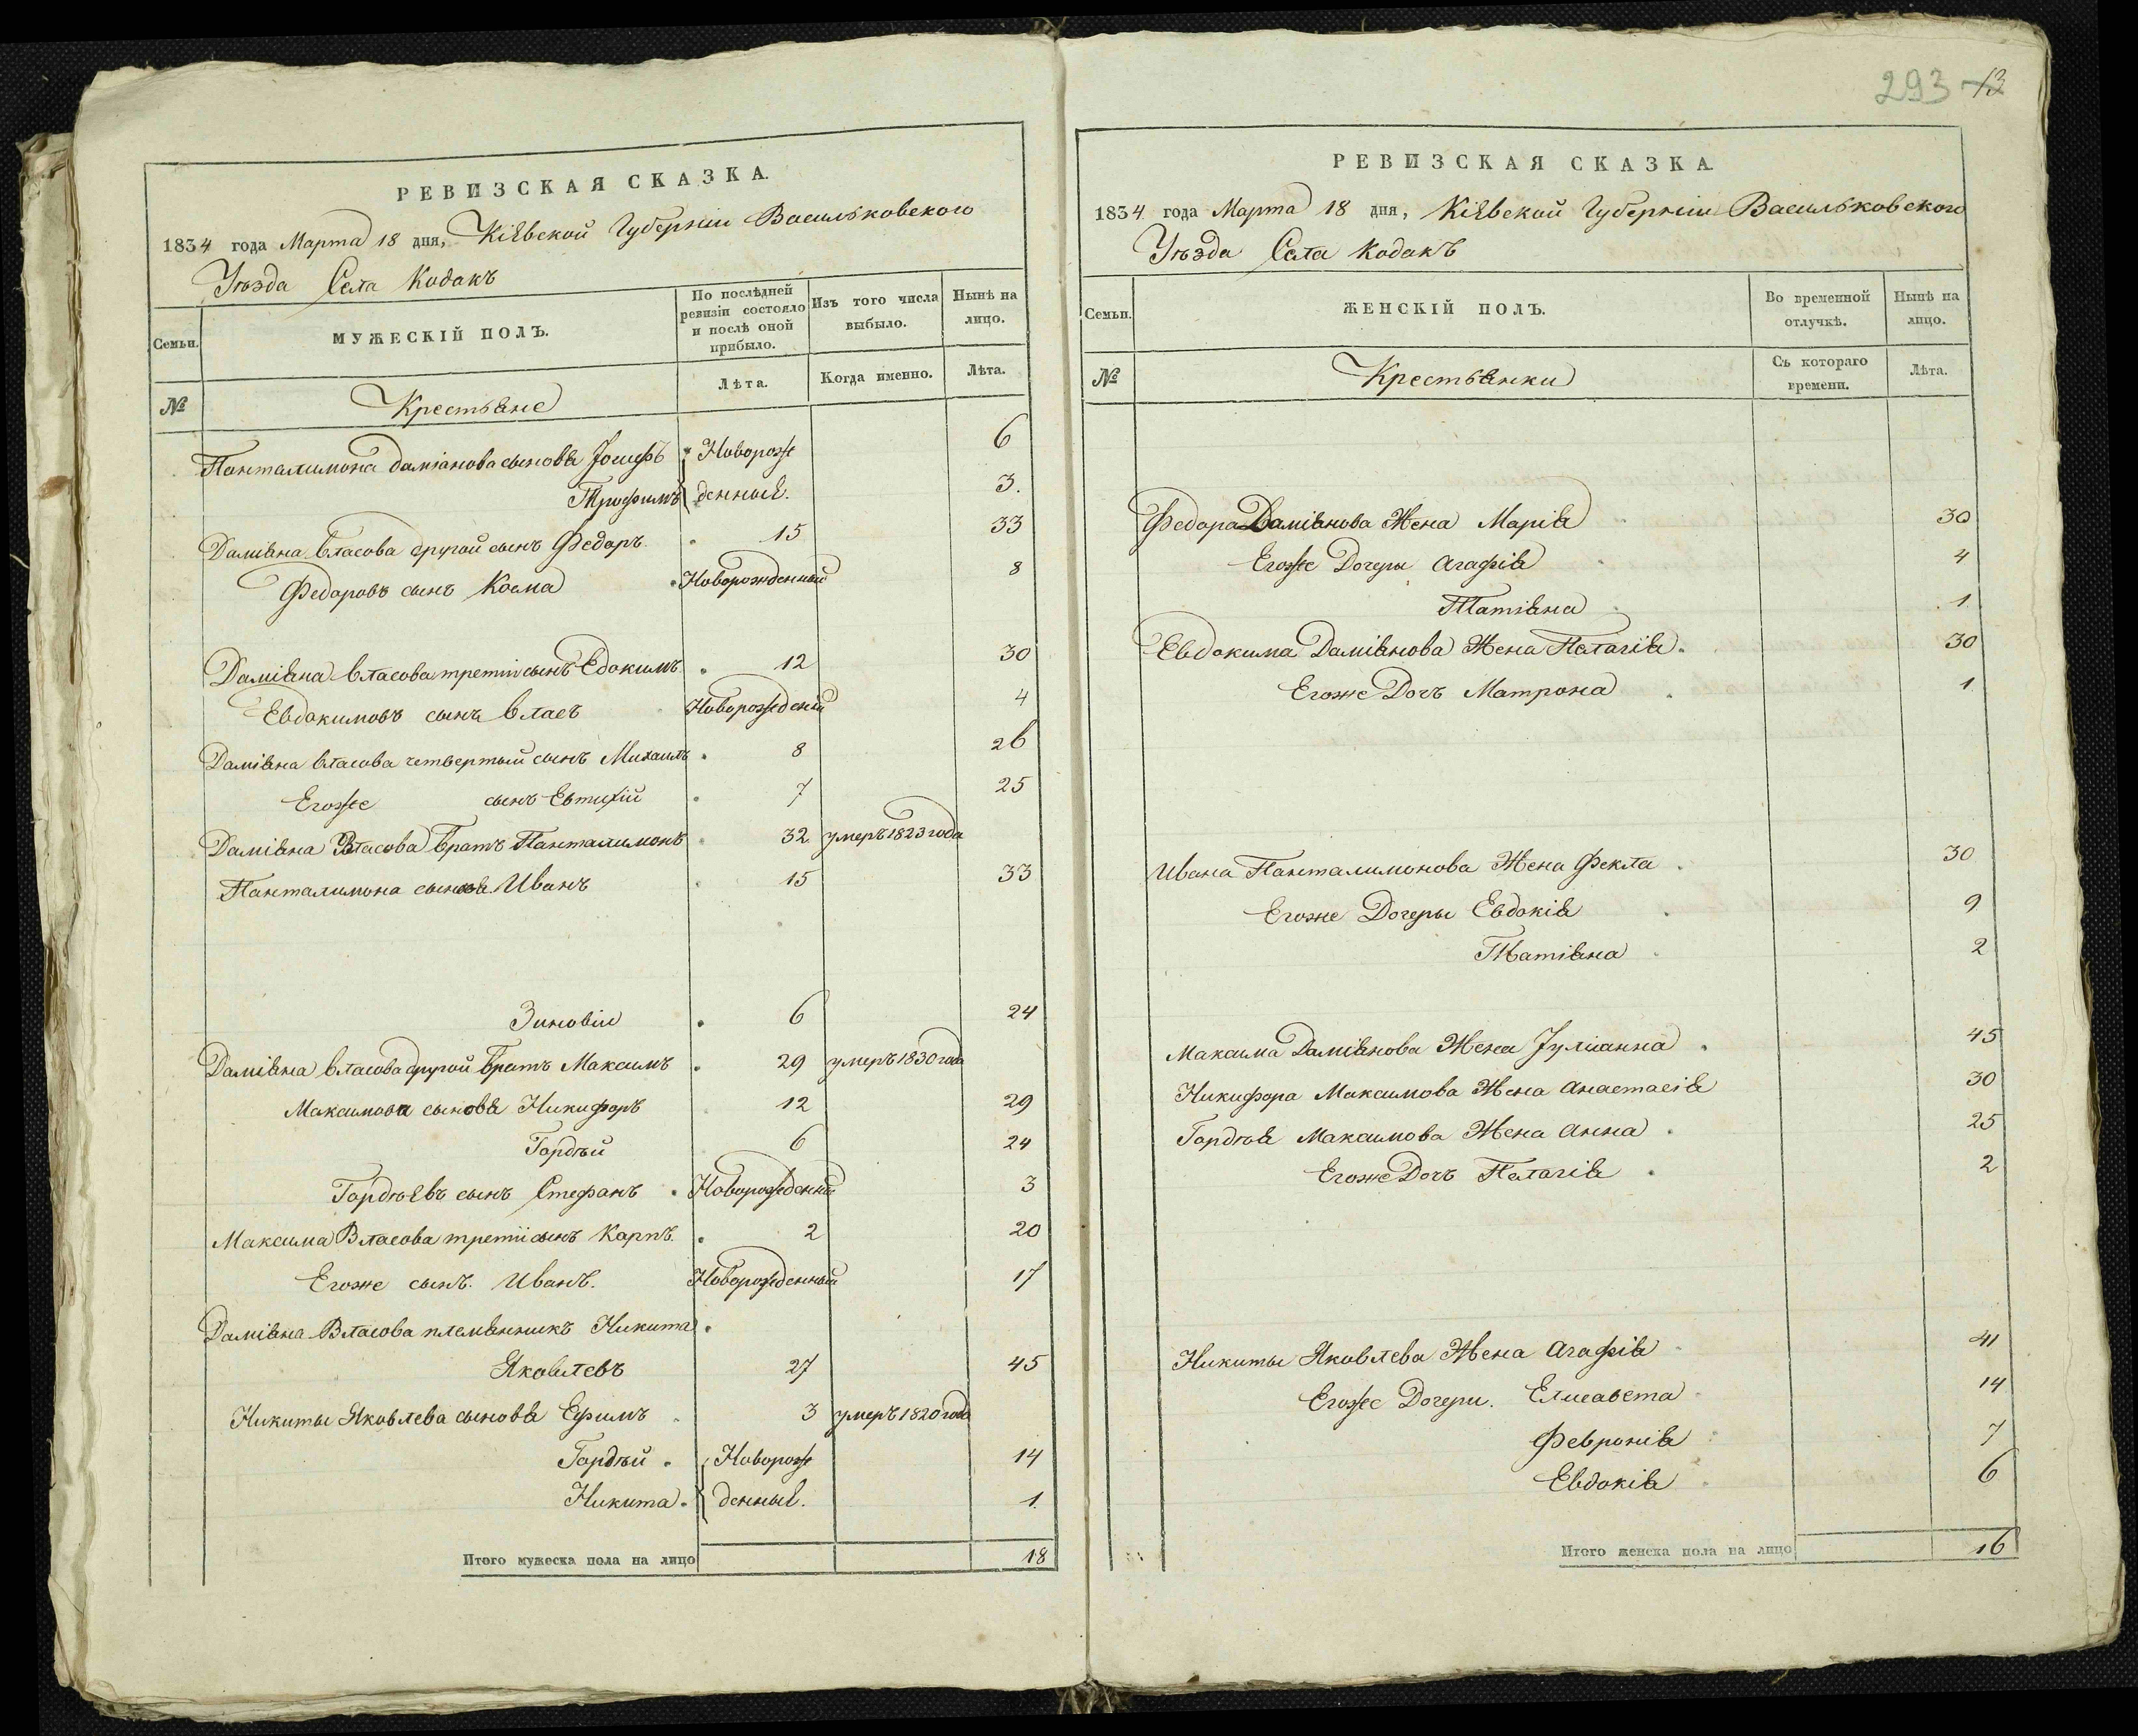 293 13
РЕВИЗСКАЯ СКАЗКА.
1834 года Марта 18 дня, Кіевской Губерніи Васильковского
Уѣзда Села Кодакъ
Семьи.
МУЖЕСКІЙ ПОЛЪ.
По послѣдней ревизіи состояло и послѣ оной прибыло.
Изъ того числа выбыло.
Нынѣ на лицо.
№
Крестьяне
Лѣта.
Когда именно.
Лѣта.
Панталимона даміанова сыновья Іосифъ Новорож 6
Трофимъ денные. 3.
Даміяна Власова другой сынъ Федоръ 15 33
Федоровъ сынъ Косма Новорожденный 8
Даміяна Власова третіи сынъ Евдокимъ 12 30
Евдокимовъ сынъ Власъ Новорожденій 4
Даміяна власова четвертый сынъ Михаилъ 8 26
Егоже сынъ Евтихій 7 25
Даміяна Власова Братъ Панталимонъ 32 умеръ 1823 года
Панталимона сыновья Иванъ 15 33
Зиновіи 6 24
Даміяна Власова другой Братъ Максимъ 29 умеръ 1830 года
Максимова сыновья Никифоръ 12 29
Гордѣй 6 24
Гордѣевъ сынъ Стефанъ Новорожденый 3
Максима Власова третіи сынъ Карпъ. 2 20
Егоже сынъ. Иванъ. Новорожденный 17
Даміяна Власова племянникъ Никита
Яковлевъ 27 45
Никиты Яковлева сыновья Ефимъ 3 умеръ 1820 года
Гордѣй Новорож 14
Никита денные. 1.
Итого мужеска пола на лицо 18
РЕВИЗСКАЯ СКАЗКА.
1834 года Марта 18 дня, Кіевской Губерніи Васильковского
Уѣзда Села Кодакъ
Семьи.
ЖЕНСКІЙ ПОЛЪ.
Во временной отлучкѣ.
Нынѣ на лицо.
№
Крестьянки
Съ котораго времени.
Лѣта.
Федора Даміянова Жена Марія 30
Егоже Дочеры Агафія 4
Татіяна 1
Евдокима Даміянова Жена Палагія. 30
Егоже Дочъ Матрона 1
Ивана Панталимонова Жена Фекла 30
Егоже Дочеры Евдокія 9
Татіяна 2
Максима Даміянова Жена Іуліанна 45
Никифора Максимова Жена Анастасія 30
Гордѣя Максимова Жена Анна 25
Егоже Дочъ Палагія 2
Никиты Яковлева Жена Агафія 41
Егоже Дочери. Елисавета 14
Февронія 7
Евдокія 6
Итого женска пола на лицо 16